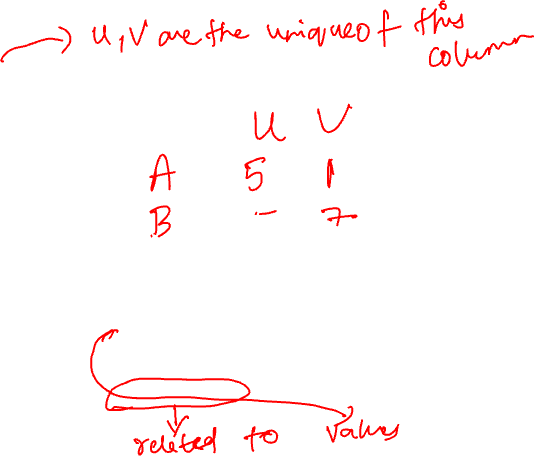 u, v are the unique of this
column
u v
A 5 1
B - 7
related to values